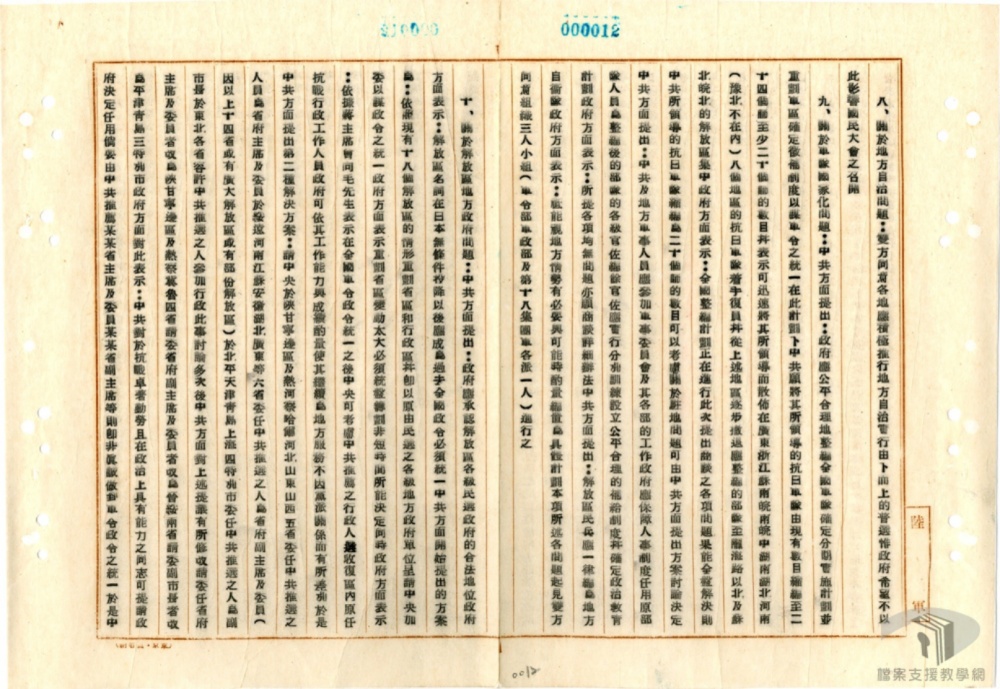 000012
八、關於地方自治問題：雙方同意各地應積極推行地方自治實行由下而上的普選惟政府希望不以
此影響國民大會之召開
九、關於軍隊國家化問題：中共方面提出：政府應公平合理地整編全國軍隊確定分期實施計劃並
重劃軍區確定徵補制度以謀軍令之統一在此計劃下中共願將其所領導的抗日軍隊由現有數目縮編至二
十四個師至少二十個師的數目并表示可迅速將其所領導而散佈在廣東浙江蘇南皖南皖中湖南湖北河南
（豫北不在內）八個地區的抗日軍隊着手復員并從上述地區逐步撤退應整編的部隊至隴海路以北及蘇
北皖北的解放區集中政府方面表示：全國整編計劃正在進行此次提出商談之各項問題果能全盤解決則
中共所領導的抗日軍隊縮編為二十個師的數目可以考慮關於駐地問題可由中共方面提出方案討論決定
中共方面提出：中共及地方軍事人員應參加軍事委員會及其各部的工作政府應保障人事制度任用原部
隊人員為整編後的部隊的各級官佐編餘官佐應實行分別訓練設立公平合理的補給制度并確定政治教育
計劃政府方面表示：所提各項均無問題亦願商談詳細辦法中共方面提出：解放區民兵應一律編為地方
自衛隊政府方面表示：只能視地方情勢有必要與可能時酌量編置為具體計劃本項所述各問題起見雙方
同意組織三人小組（軍令部軍政部及第十八集團軍各派一人）進行之
十、關於解放區地方政府問題：中共方面提出：政府應承認解放區各級民選政府的合法地位政府
方面表示：解放區名詞在日本無條件投降以後應成為過去全國政令必須統一中共方面開始提出的方案
為：依照現有十八個解放區的情形重劃省區和行政區并即以原由民選之各級地方政府單位呈請中央加
委以謀政令之統一政府方面表示重劃省區變動太大必須統盤籌劃非短時間所能決定同時政府方面表示
：依據蔣主席曾向毛先生表示在全國軍令政令統一之後中央可考慮中共推薦之行政人選收復區內原任
抗戰行政工作人員政府可依其工作能力與成績酌量使其繼續為地方服務不因黨派關係而有所差別於是
中共方面提出第二種解決方案：請中央於陝甘寧邊區及熱河察哈爾河北山東山西五省委任中共推選之
人員為省府主席及委員於綏遠河南江蘇安徽湖北廣東等六省委任中共推選之人為省府副主席及委員（
因以上十四省或有廣大解放區或有部份解放區）於北平天津青島上海四特別市委任中共推選之人為副
市長於東北各省容許中共推選之人參加行政此事討論多次後中共方面對上述提議有所修改請委任省府
主席及委員者改為陝甘寧邊區及熱察冀魯四省請委省府副主席及委員者改為晉綏兩省請委副市長者改
為平津青島三特別市政府方面對此表示：中共對於抗戰卓著勤勞且在政治上具有能力之同志可提請政
府決定任用倘要由中共推薦某某省主席及委員某某省副主席等則即非真誠做到軍令政令之統一於是中
陸
軍
0012
檔案支援教學網